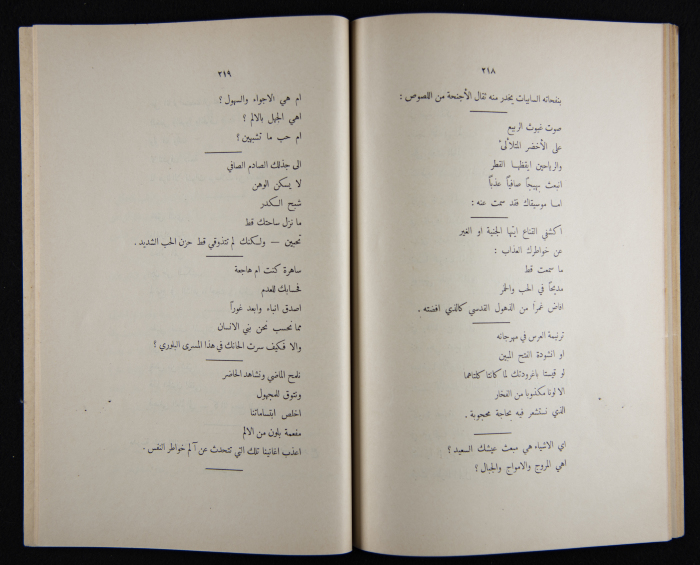 ٢١٨
بنفحاته السابيات يخدر منه ثقال الأجنحة من اللصوص :
صوت غيوث الربيع
على الأخضر المتلألئ
والرياحين ايقظها القطر
انبعث بهيجاً صافياً عذباً
اما موسيقاك فقد سمت عنه :
اكشفي القناع ايتها الجنية او الغير
عن خواطرك العذاب :
ما سمعت قط
مديحاً في الحب والخمر
افاض غمراً من الذهول القدسي كالذي افضته .
ترنيمة العرس في مهرجانه
او انشودة الفتح المبين
لو قيستا باغرودتك لما كانتا كلتاهما
الا لونا مكذوبا من الفخار
الذي نستشعر فيه بحاجة محجوبة .
اي الاشياء هي منبعث عيشك السعيد ؟
اهي المروج والامواج والجبال ؟
٢١٩
ام هي الاجواء والسهول ؟
اهي الجهل بالالم ؟
ام حب ما تشبهين ؟
الى جذلك الصادم الصافي
لا يسكن الوهن
شبح الكدر
ما نزل ساحتك قط
تحبين — ولكنك لم تتذوقي قط حزن الحب الشديد .
ساهرة كنت ام هاجعة
فحسابك للعدم
اصدق انباء وابعد غوراً
مما نحسب نحن بني الانسان
والا فكيف سرت الحانك في هذا المسرى البلوري ؟
نلفح الماضي ونشاهد الحاضر
ونتوق للمجهول
اخلص ابتساماتنا
مفعمة بلون من الالم
اعذب اغانينا تلك التي تتحدث عن آلم خواطر النفس .